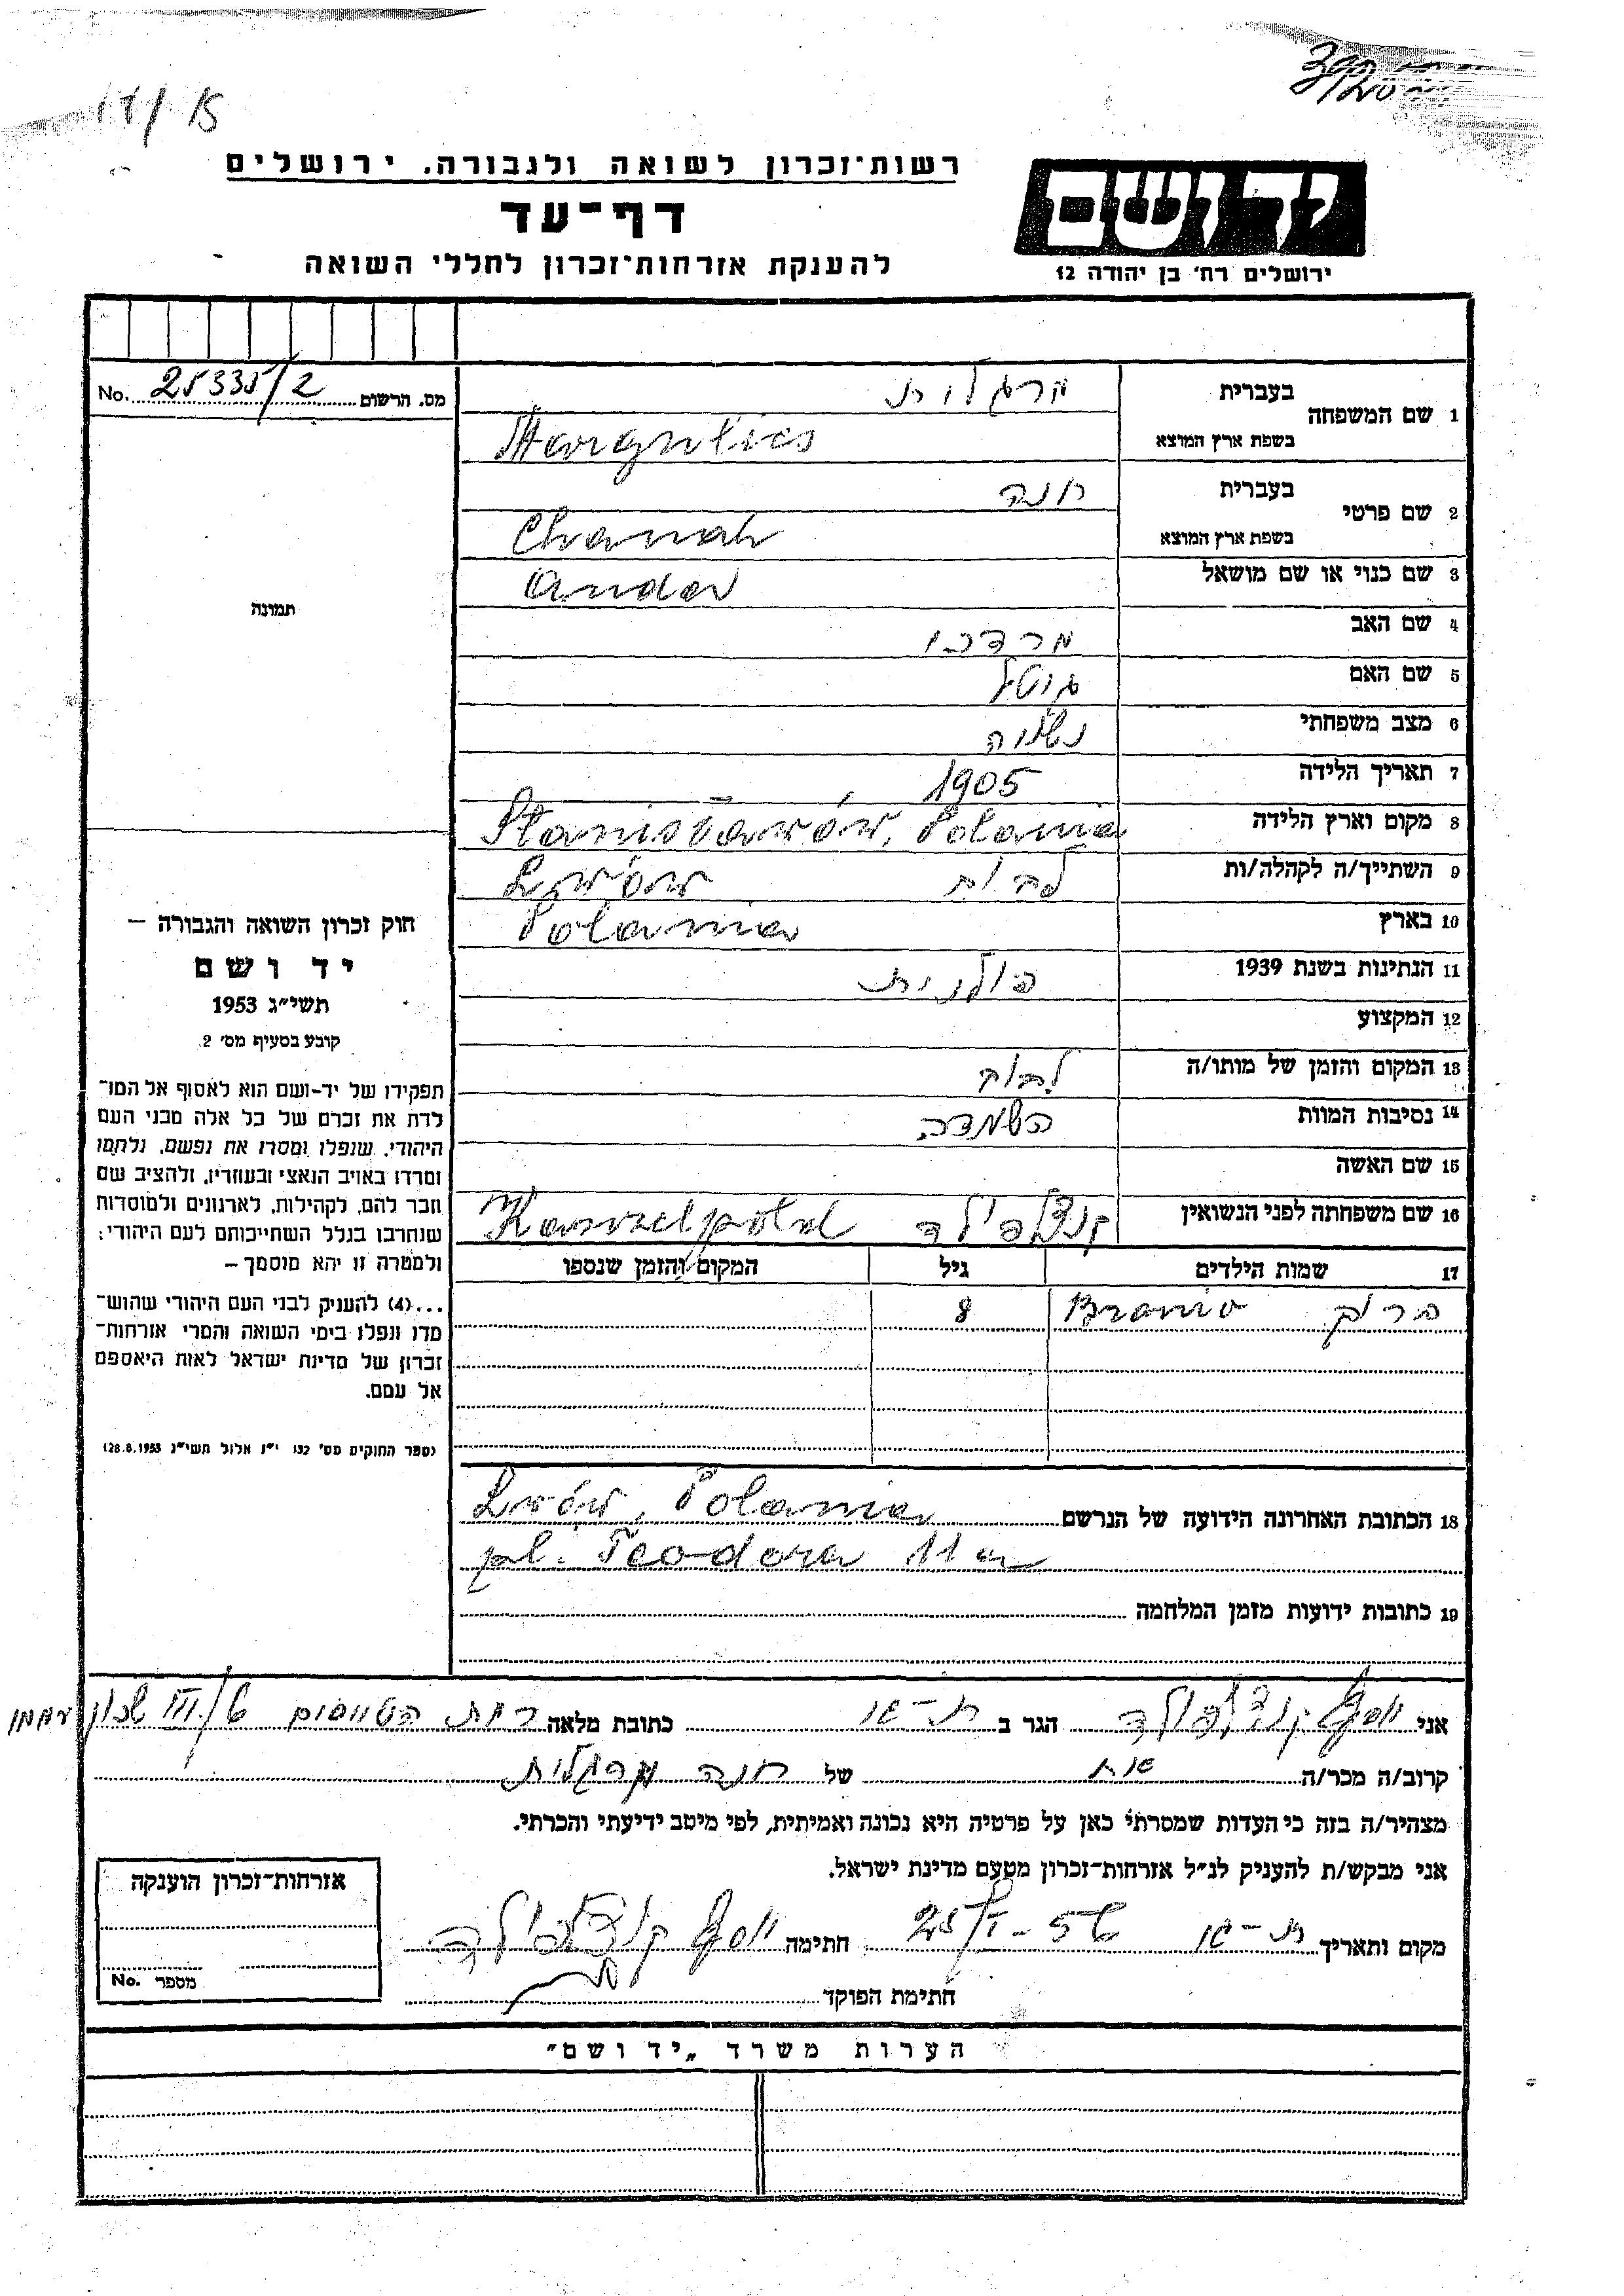 25335/2
רשות־זכרון לשואה ולגבורה. ירושלים
דף־עד
להענקת אזרחות־זכרון לחללי השואה
יד ושם
ירושלים רח' בן יהודה 12
מס. הרשום 25335/2 No.
תמונה
1 שם המשפחה בעברית מרגלות
בשפת ארץ המוצא Margulies
2 שם פרטי בעברית חנה
בשפת ארץ המוצא Chanah
3 שם כנוי או שם מושאל Anda
4 שם האב מרדכי
5 שם האם גוסטל
6 מצב משפחתי נשואה
7 תאריך הלידה 1905
8 מקום וארץ הלידה Stanisławów, Polania
9 השתייך/ה לקהלה/ות לבוב Lwów
10 בארץ Polania
11 הנתינות בשנת 1939 פולנית
12 המקצוע
13 המקום והזמן של מותו/ה לבוב
14 נסיבות המוות השמדה
15 שם האשה
16 שם משפחתה לפני הנשואין קנצלפולד Kanzelpold
17 שמות הילדים גיל המקום והזמן שנספו
ברוך Bronio 8
18 הכתובת האחרונה הידועה של הנרשם Lwów, Polania
pl. Teodora 11a
19 כתובות ידועות מזמן המלחמה
חוק זכרון השואה והגבורה —
יד ושם
תשי״ג 1953
קובע בסעיף מס' 2
תפקידו של יד-ושם הוא לאסוף אל המו־
לדת את זכרם של כל אלה מבני העם
היהודי, שנפלו ומסרו את נפשם, נלחמו
ומרדו באויב הנאצי ובעוזריו, ולהציב שם
וזכר להם, לקהילות, לארגונים ולמוסדות
שנחרבו בגלל השתייכותם לעם היהודי;
ולמטרה זו יהא מוסמך —
...(4) להעניק לבני העם היהודי שהוש־
מדו ונפלו בימי השואה והמרי אזרחות־
זכרון של מדינת ישראל לאות היאספם
אל עמם.
(ספר החוקים מס' 132 י״ז אלול תשי״ג 28.8.1953)
אני יוסף קנצלפולד הגר ב ת-גן כתובת מלאה רמת הטייסים 6/III שכון עממי
קרוב/ה מכר/ה אח של חנה מרגלות
מצהיר/ה בזה כי העדות שמסרתי כאן על פרטיה היא נכונה ואמיתית, לפי מיטב ידיעתי והכרתי.
אני מבקש/ת להעניק לנ״ל אזרחות־זכרון מטעם מדינת ישראל.
מקום ותאריך 25/I-56 חתימה יוסף קנצלפולד
חתימת הפוקד
אזרחות־זכרון הוענקה
מספר No.
הערות משרד „יד ושם״